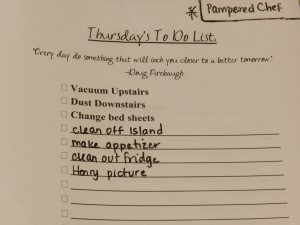 * Pampered Chef
Thursday's To Do List.
"Every day do something that will inch you closer to a better tomorrow."
-Doug Firebaugh
Vacuum Upstairs
Dust Downstairs
Change bed sheets
clean off Island
make appetizer
clean out fridge
Hang picture